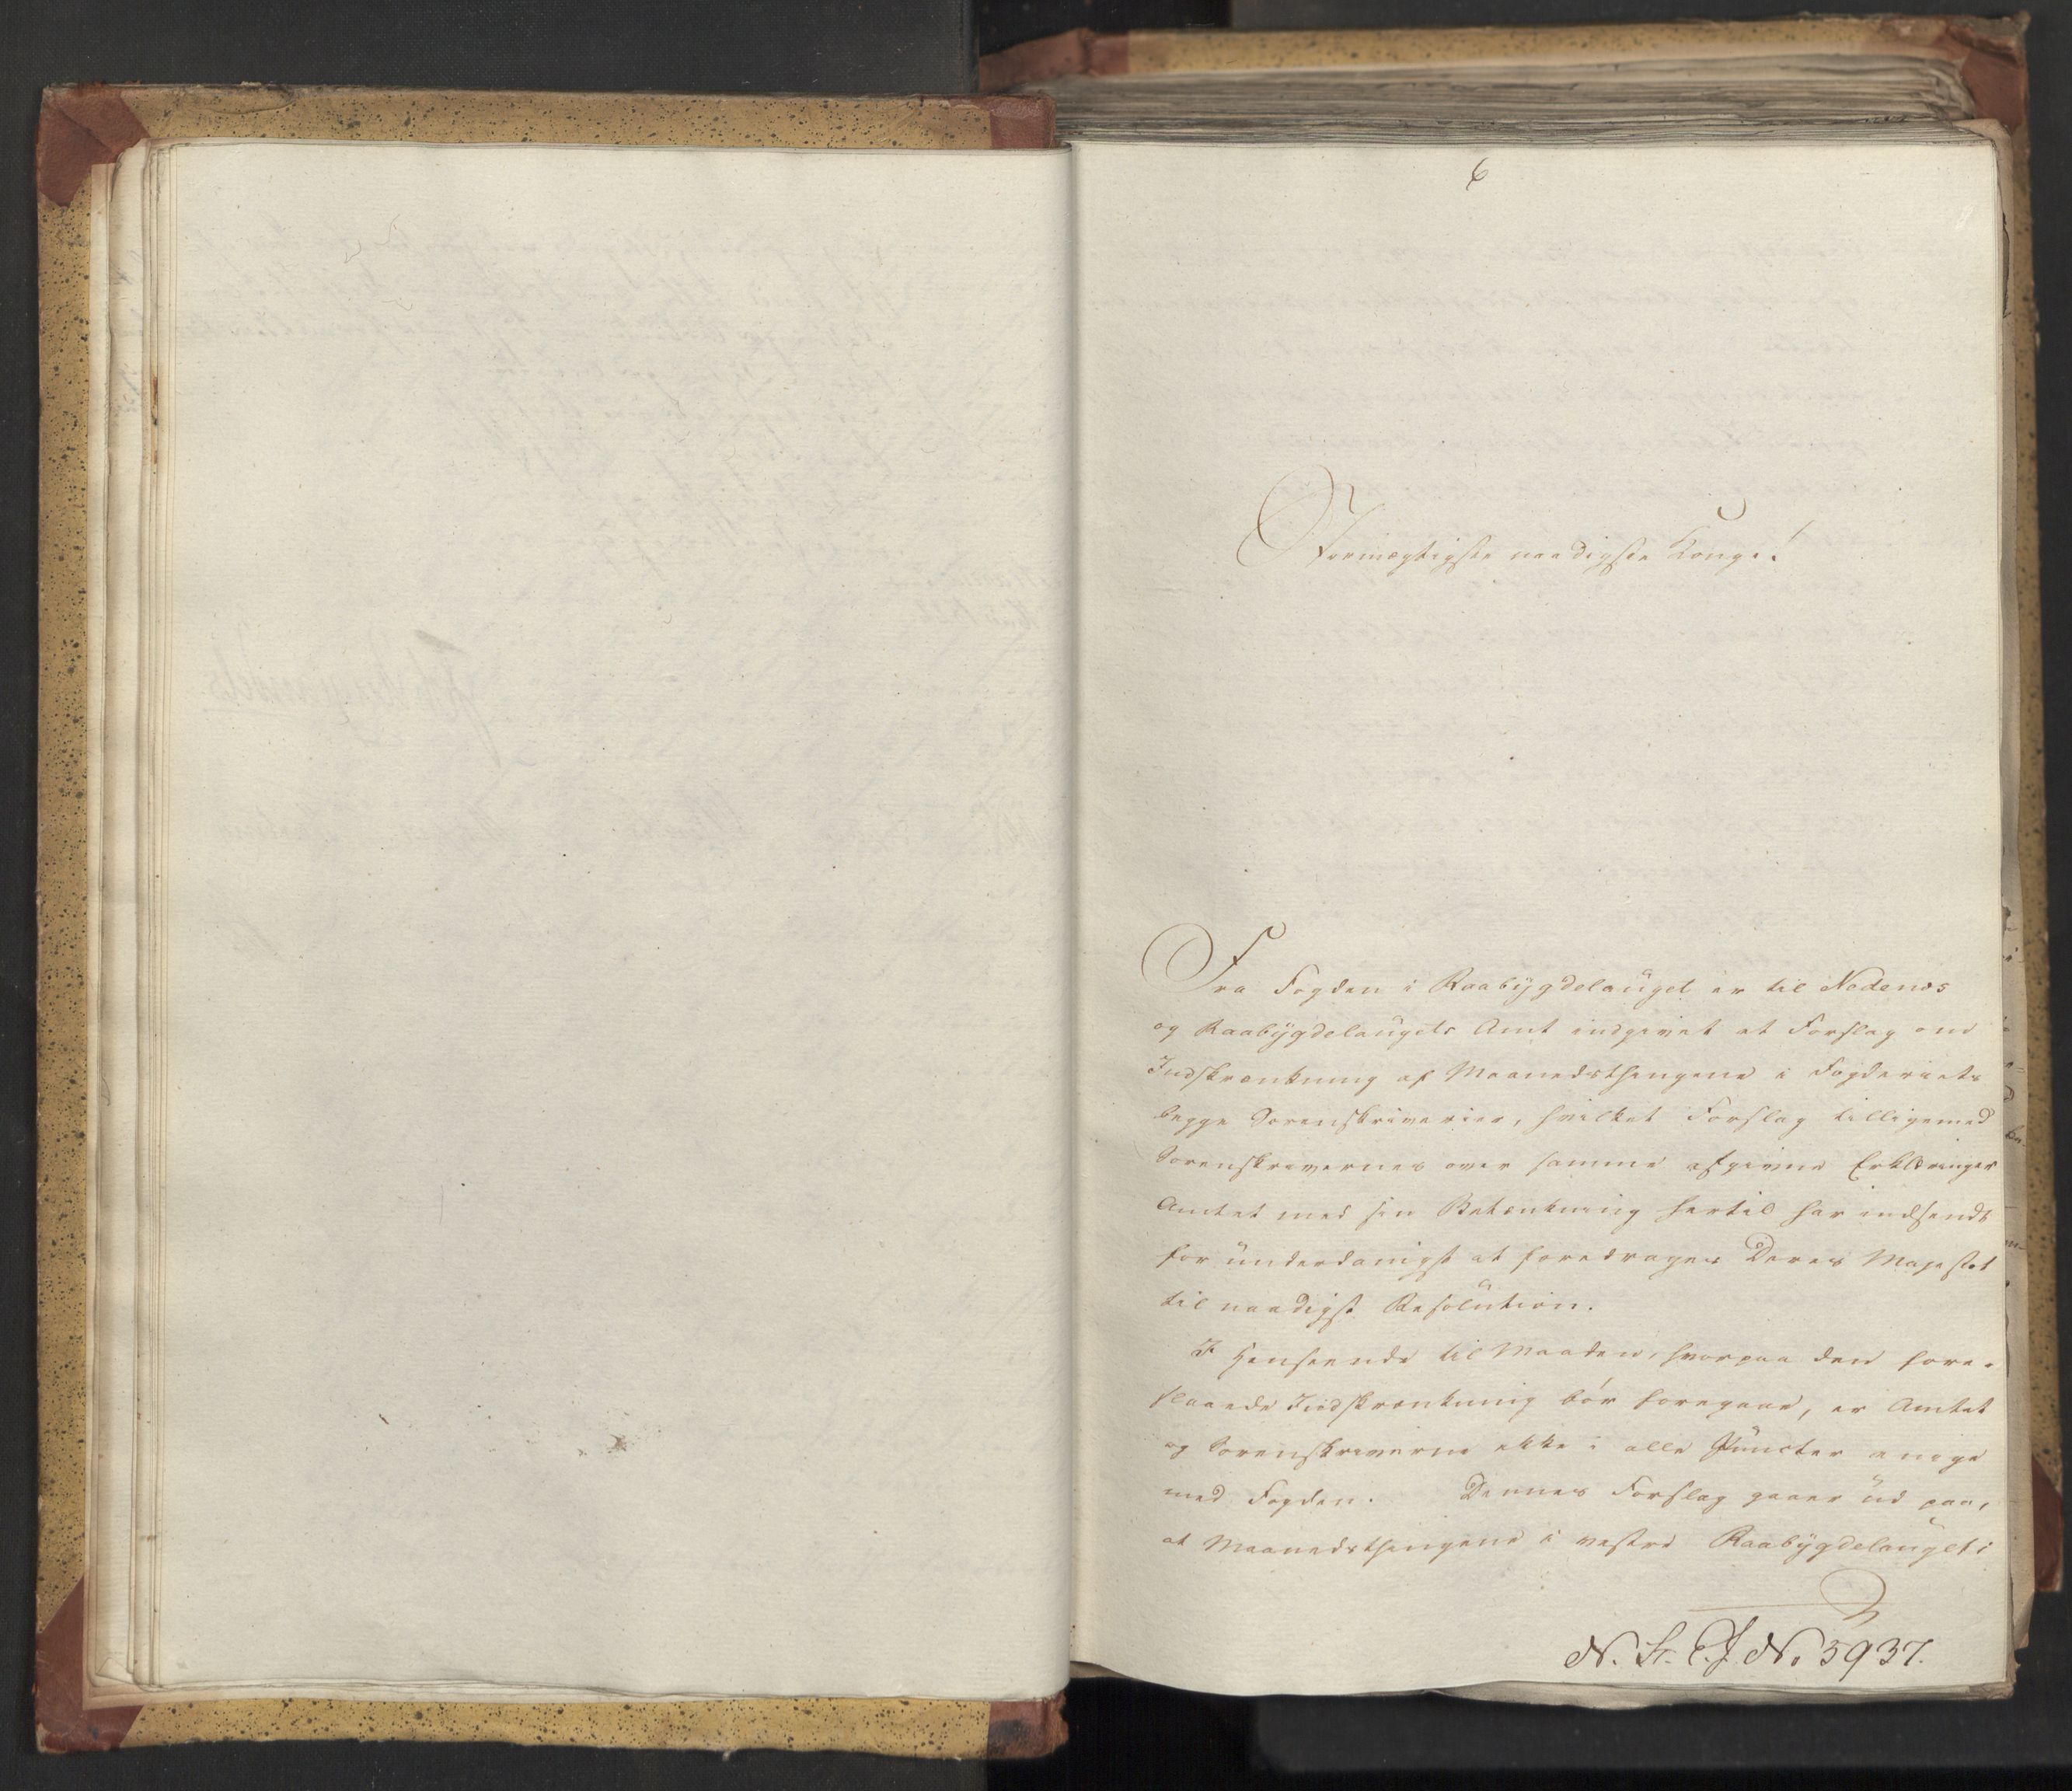 6
Stormægtigste naadigste Konge!
Fra Fogden i Raabÿgdelauget er til Nedenes
og Raabÿgdelaugets Amt indgivet et Forslag om
Indskrænkning af Maanedsthingene i Fogderiets
begge Sorenskriverier, hvilket Forslag tilligemed
Sorenskrivernes over samme afgivne Erklæringer
Amtet med sin Betænkning hertil har indsendt
for underdanigst at foredrages Deres Majestet
til naadigst Resolution.
I Henseende til Maaden, hvorpaa den fore-
slaaede Indskrænkning bör foregaae, er Amtet
og Sorenskriverne ikke i alle Puncter enige
med Fogden. Dennes Forslag gaaer ud paa,
at Maanedsthingene i vestre Raabÿgdelauget i
N. 5937.